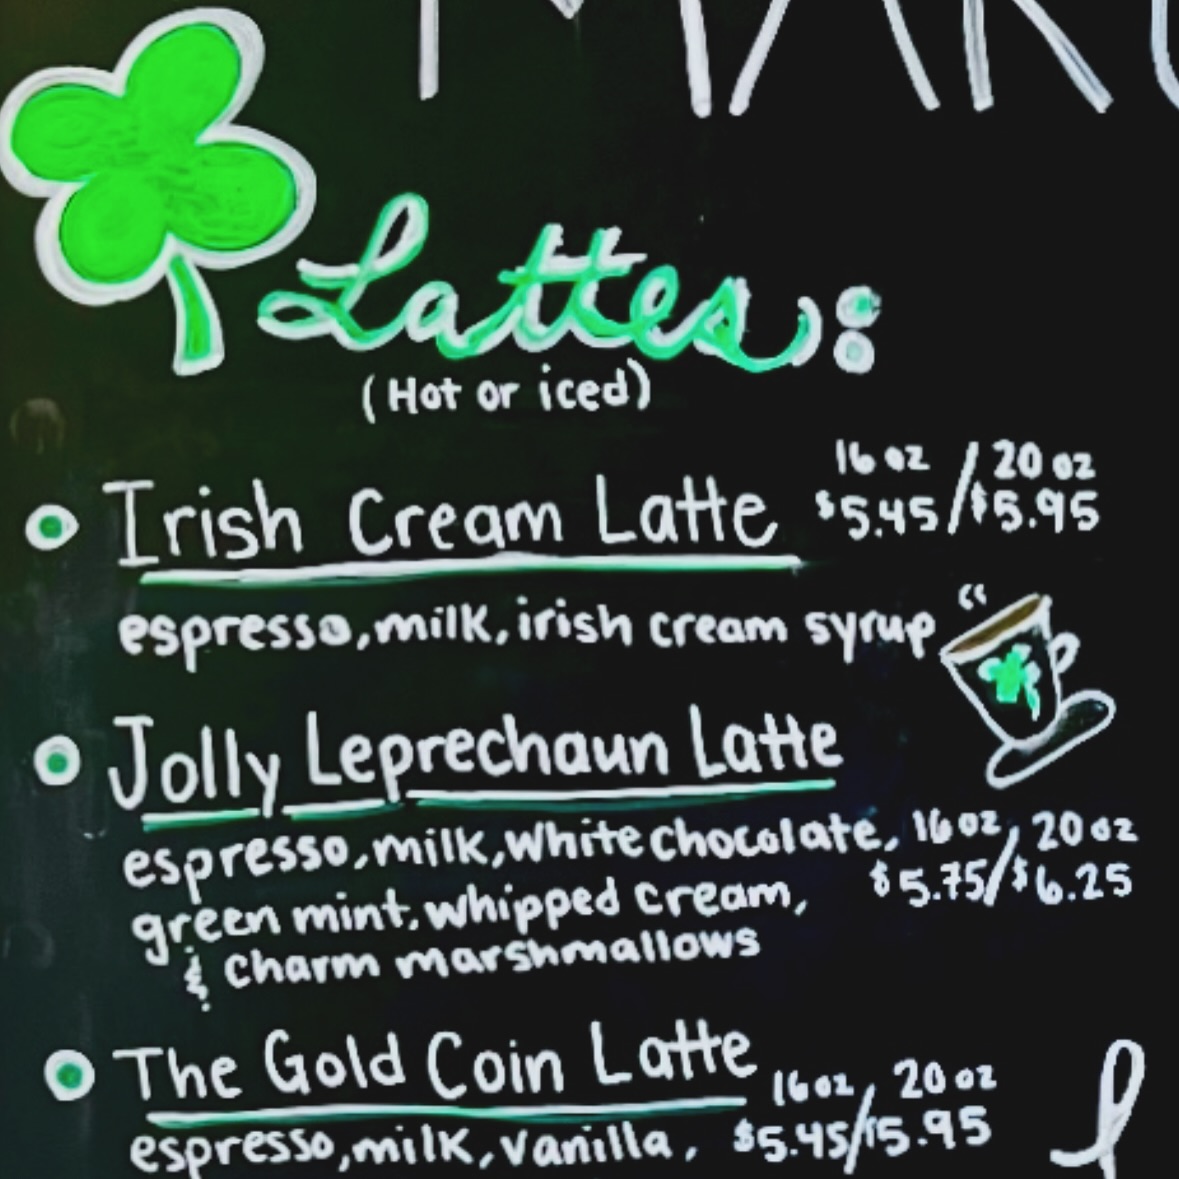 Lattes:
(Hot or iced)
16 oz / 20 oz
Irish Cream Latte $5.45/$5.95
espresso, milk, irish cream syrup
Jolly Leprechaun Latte
espresso, milk, white chocolate, 16 oz / 20 oz
green mint, whipped cream, $5.75/$6.25
& charm marshmallows
The Gold Coin Latte 16 oz / 20 oz
espresso, milk, vanilla, $5.45/$5.95